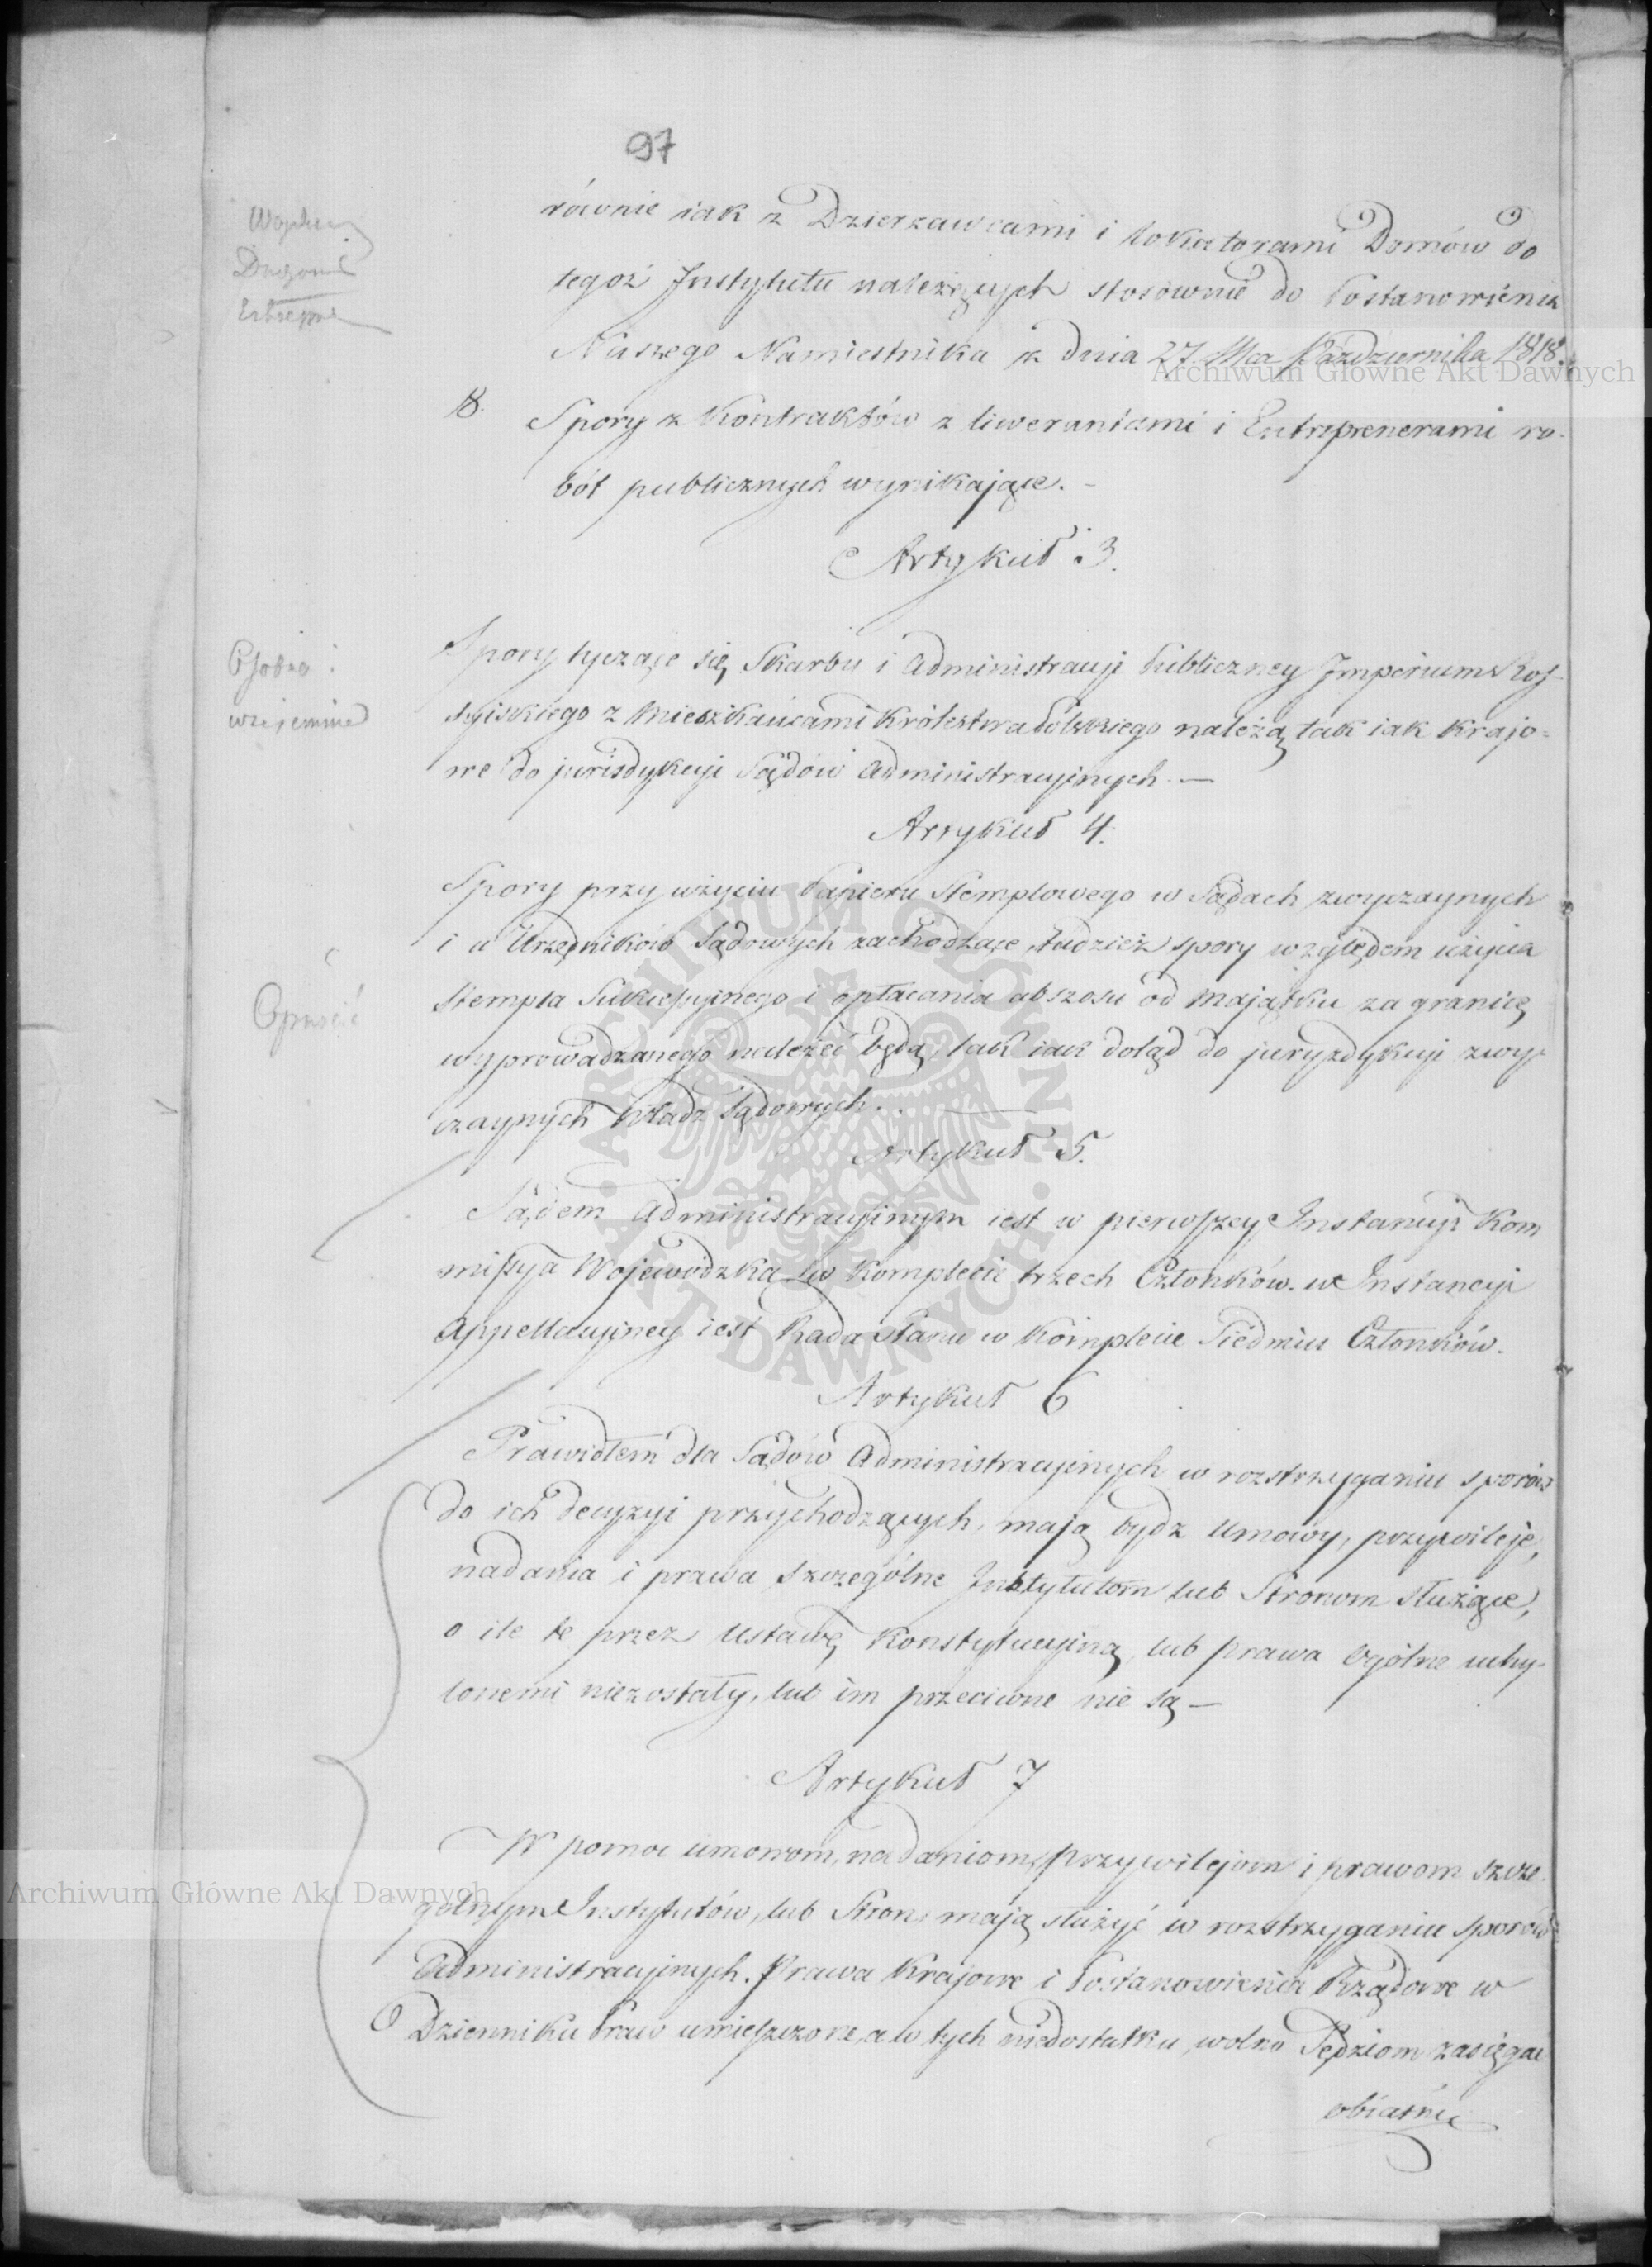 97
równie iak z Dzierzawcami i Lokatorami Domów do
tegoż Instytutu należących stosownie do Postanowienia
Naszego Namiestnika z dnia 27 Mca Października 1818.
18. Spory z Kontraktów z liwerantami i Entreprenerami ro-
bót publicznych wynikające. -
Artykuł 3.
Spory tyczące się Skarbu i Administracyi Publiczney Imperium Ros-
syiskiego z Mieszkańcami Królestwa Polskiego należą tak iak krajo-
we do jurisdykcyi Sądów Administracyjnych. —
wzajemnie
Artykuł 4.
Spory przy użyciu Papieru Stemplowego w Sądach zwyczaynych
i u Urzędników Sądowych zachodzące, tudzież spory względem użycia
Stempla Sukcessyjnego i opłacania abszosu od majątku za granicę
Opuścić
wyprowadzanego należéć będą, tak iak dotąd do juryzdykcyi zwy-
czaynych Władz Sądowych. . —
Artykuł 5.
Sądem Administracyinym iest w pierwszey Instancyi Kom
missya Wojewódzka w Komplecie trzech Członków. we Instancyi
Appellacyjney iest Rada Stanu w Komplecie Siedmiu Członków.
Artykuł 6
Prawidłem dla Sądów Administracyjnych w rozstrzyganiu sporów
do ich decyzyi przychodzących, mają bydz Umowy, przywileje,
nadania i prawa szczególne Instytutom lub Stronom służące,
o ile te przez Ustawę Konstytucyjną, lub prawa Ogólne uchy-
lonemi niezostały, lub im przeciwne nie są —
Artykuł 7
W pomoc umowom, nadaniom, przywilejom i prawom szcze-
gólnym Instytutów, lub Stron, mają służyć w rozstrzyganiu sporów
Administracyjnych. Prawa Krajowe i Postanowienia Rządowe w
Dzienniku Praw umieszczone, a w tych niedostatku, wolno Sędziom zasięgać
obiaśnie
Archiwum Główne Akt Dawnych
Archiwum Główne Akt Dawnych
ARCHIWUM GŁÓWNE AKT DAWNYCH